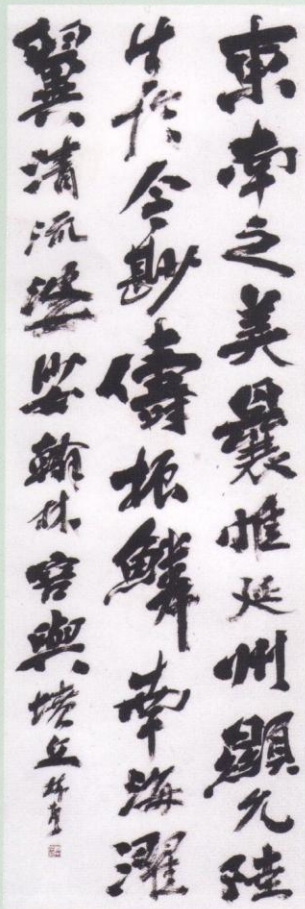 東南之美曩惟延州顯允陸
生於今尠儔振鱗南海濯
翼清流婆娑翰林容與墳丘